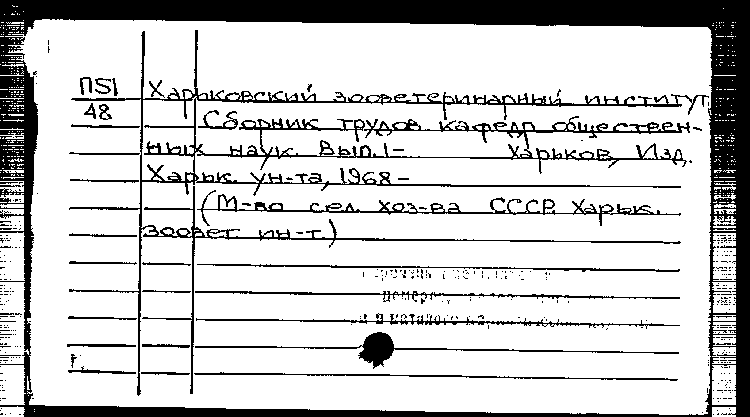 П51 Харьковский зооветеринарный институт
48 Сборник трудов кафедр обществен-
ных наук. Вып. 1- Харьков, Изд.
Харьк. ун-та, 1968-
(М-во сел. хоз-ва СССР. Харьк.
зоовет. ин-т)
г.